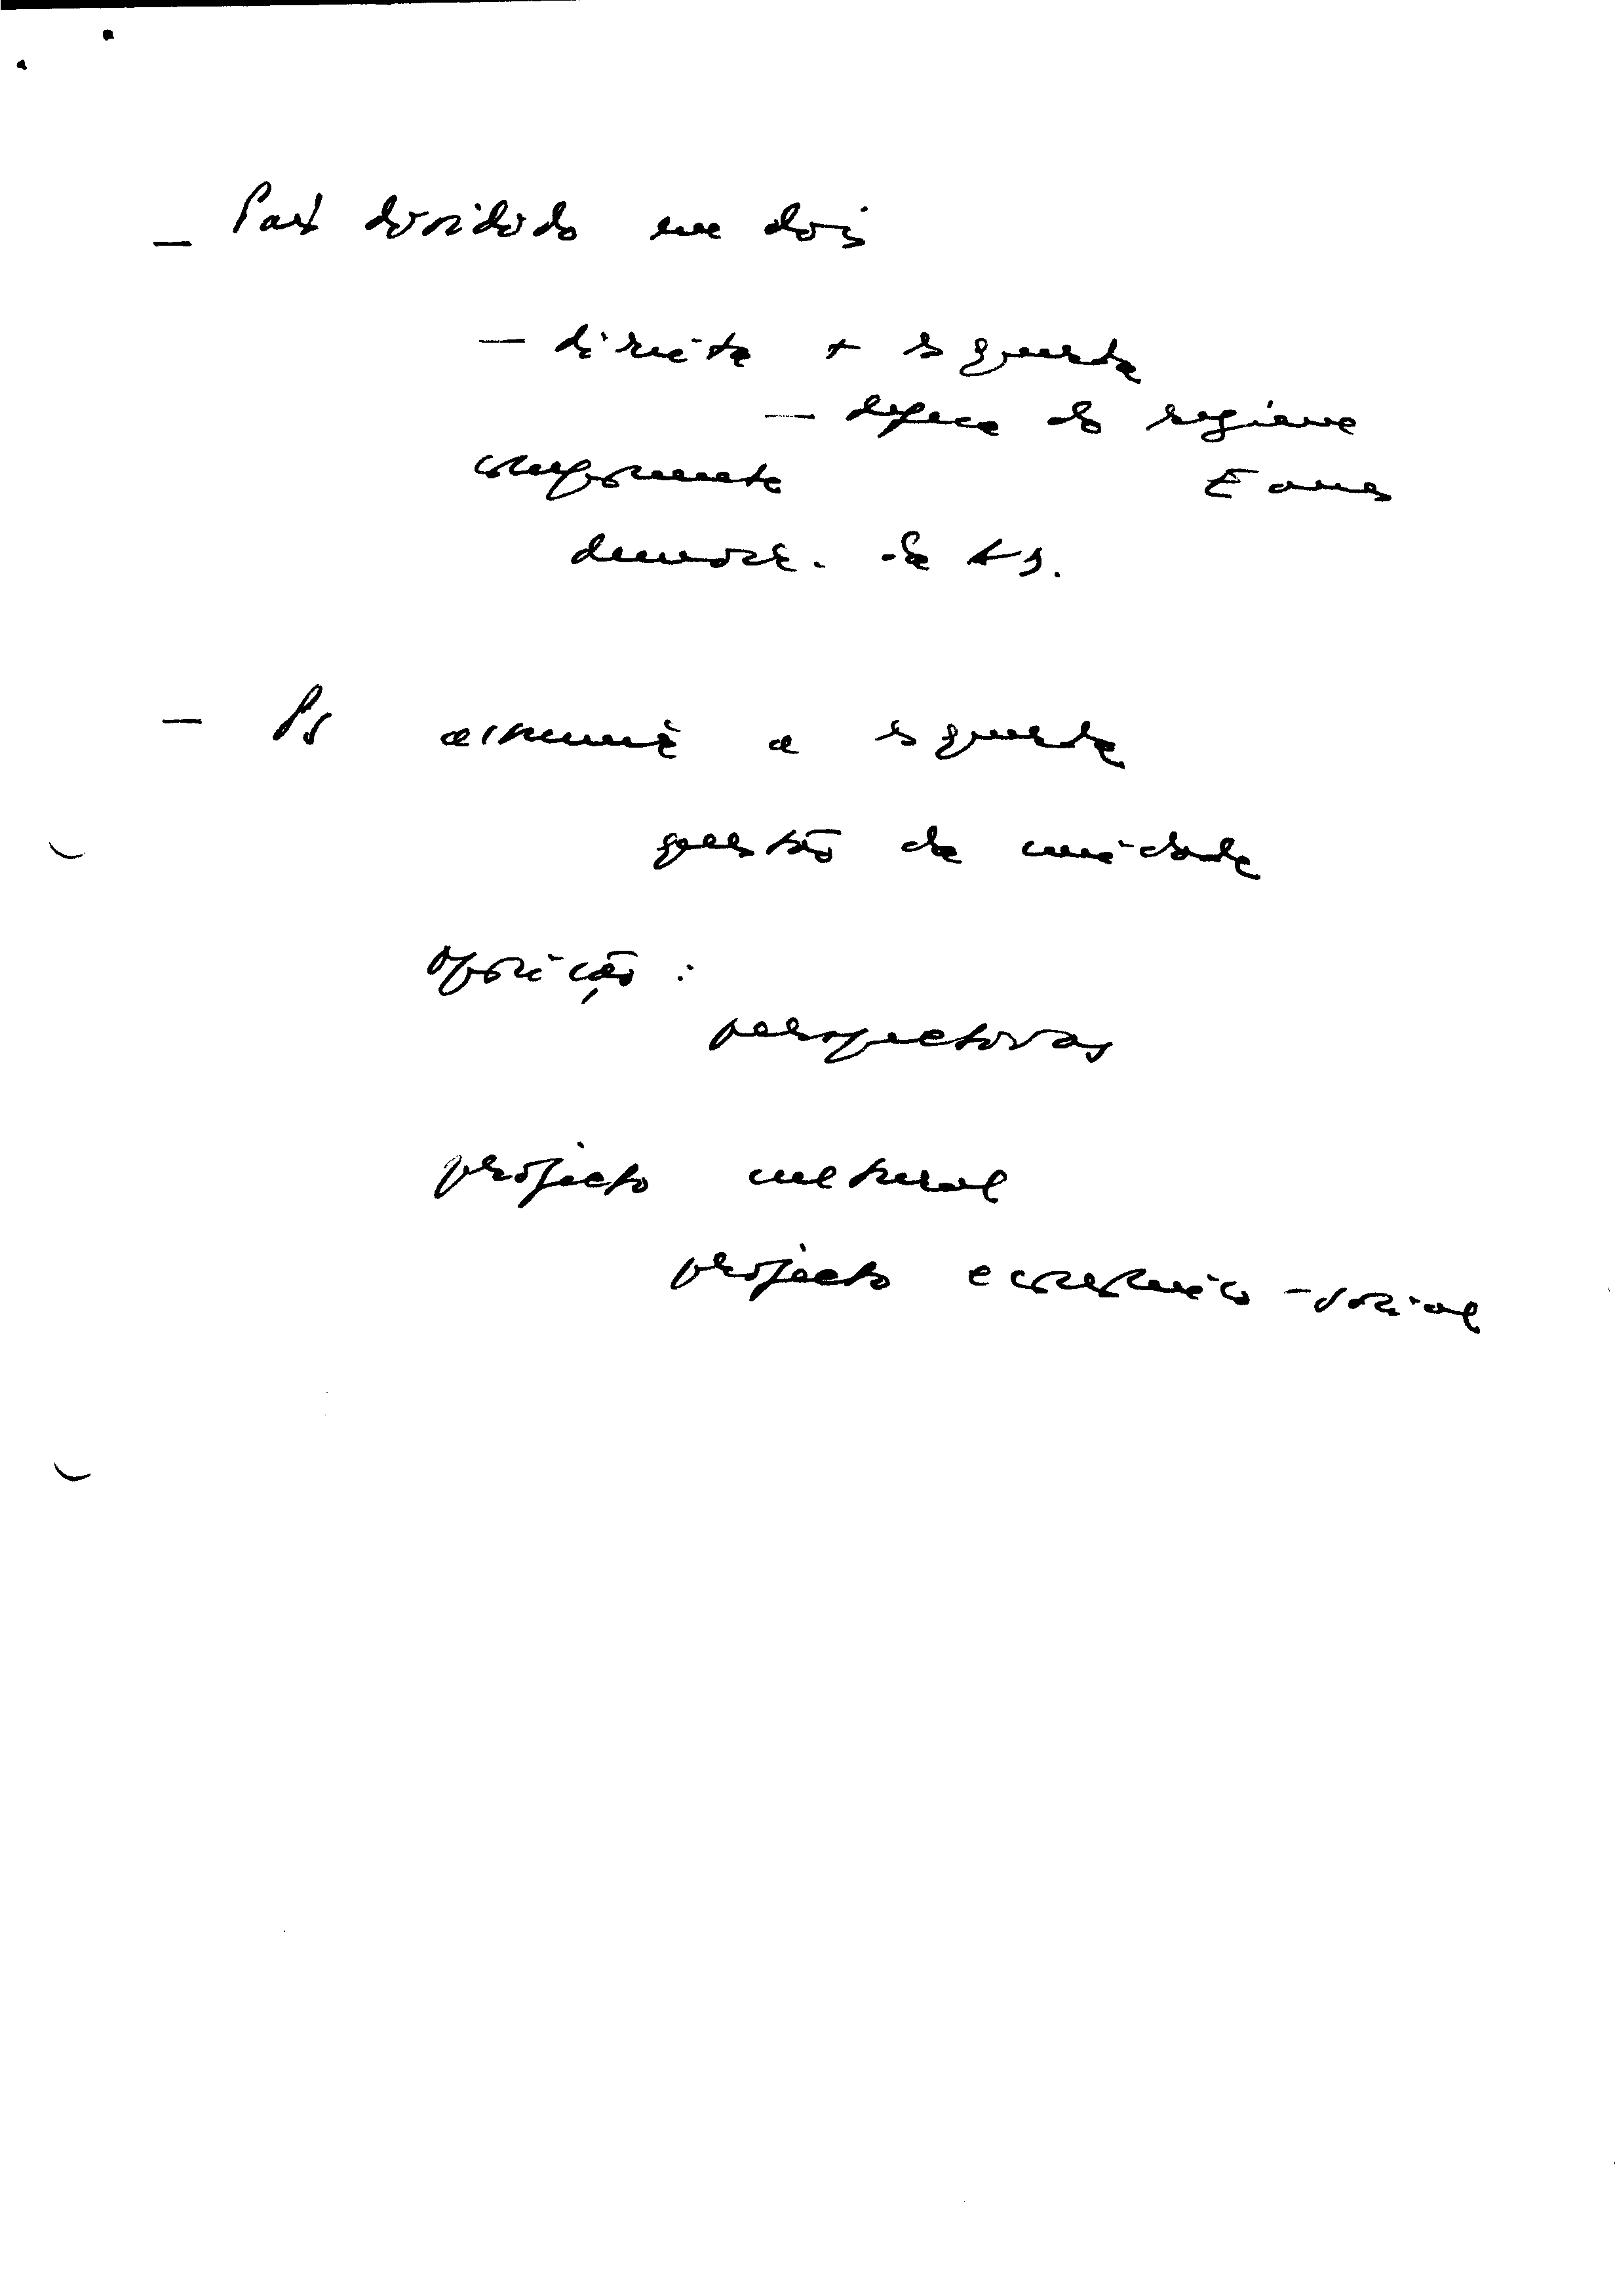 — País dividido em dois
— direita + esquerda
— defesa do regime
componente Eanes
democr.
— PS assumir a esquerda
questão da unidade
oposição :
perspectivas
projecto cultural
projecto económico-social